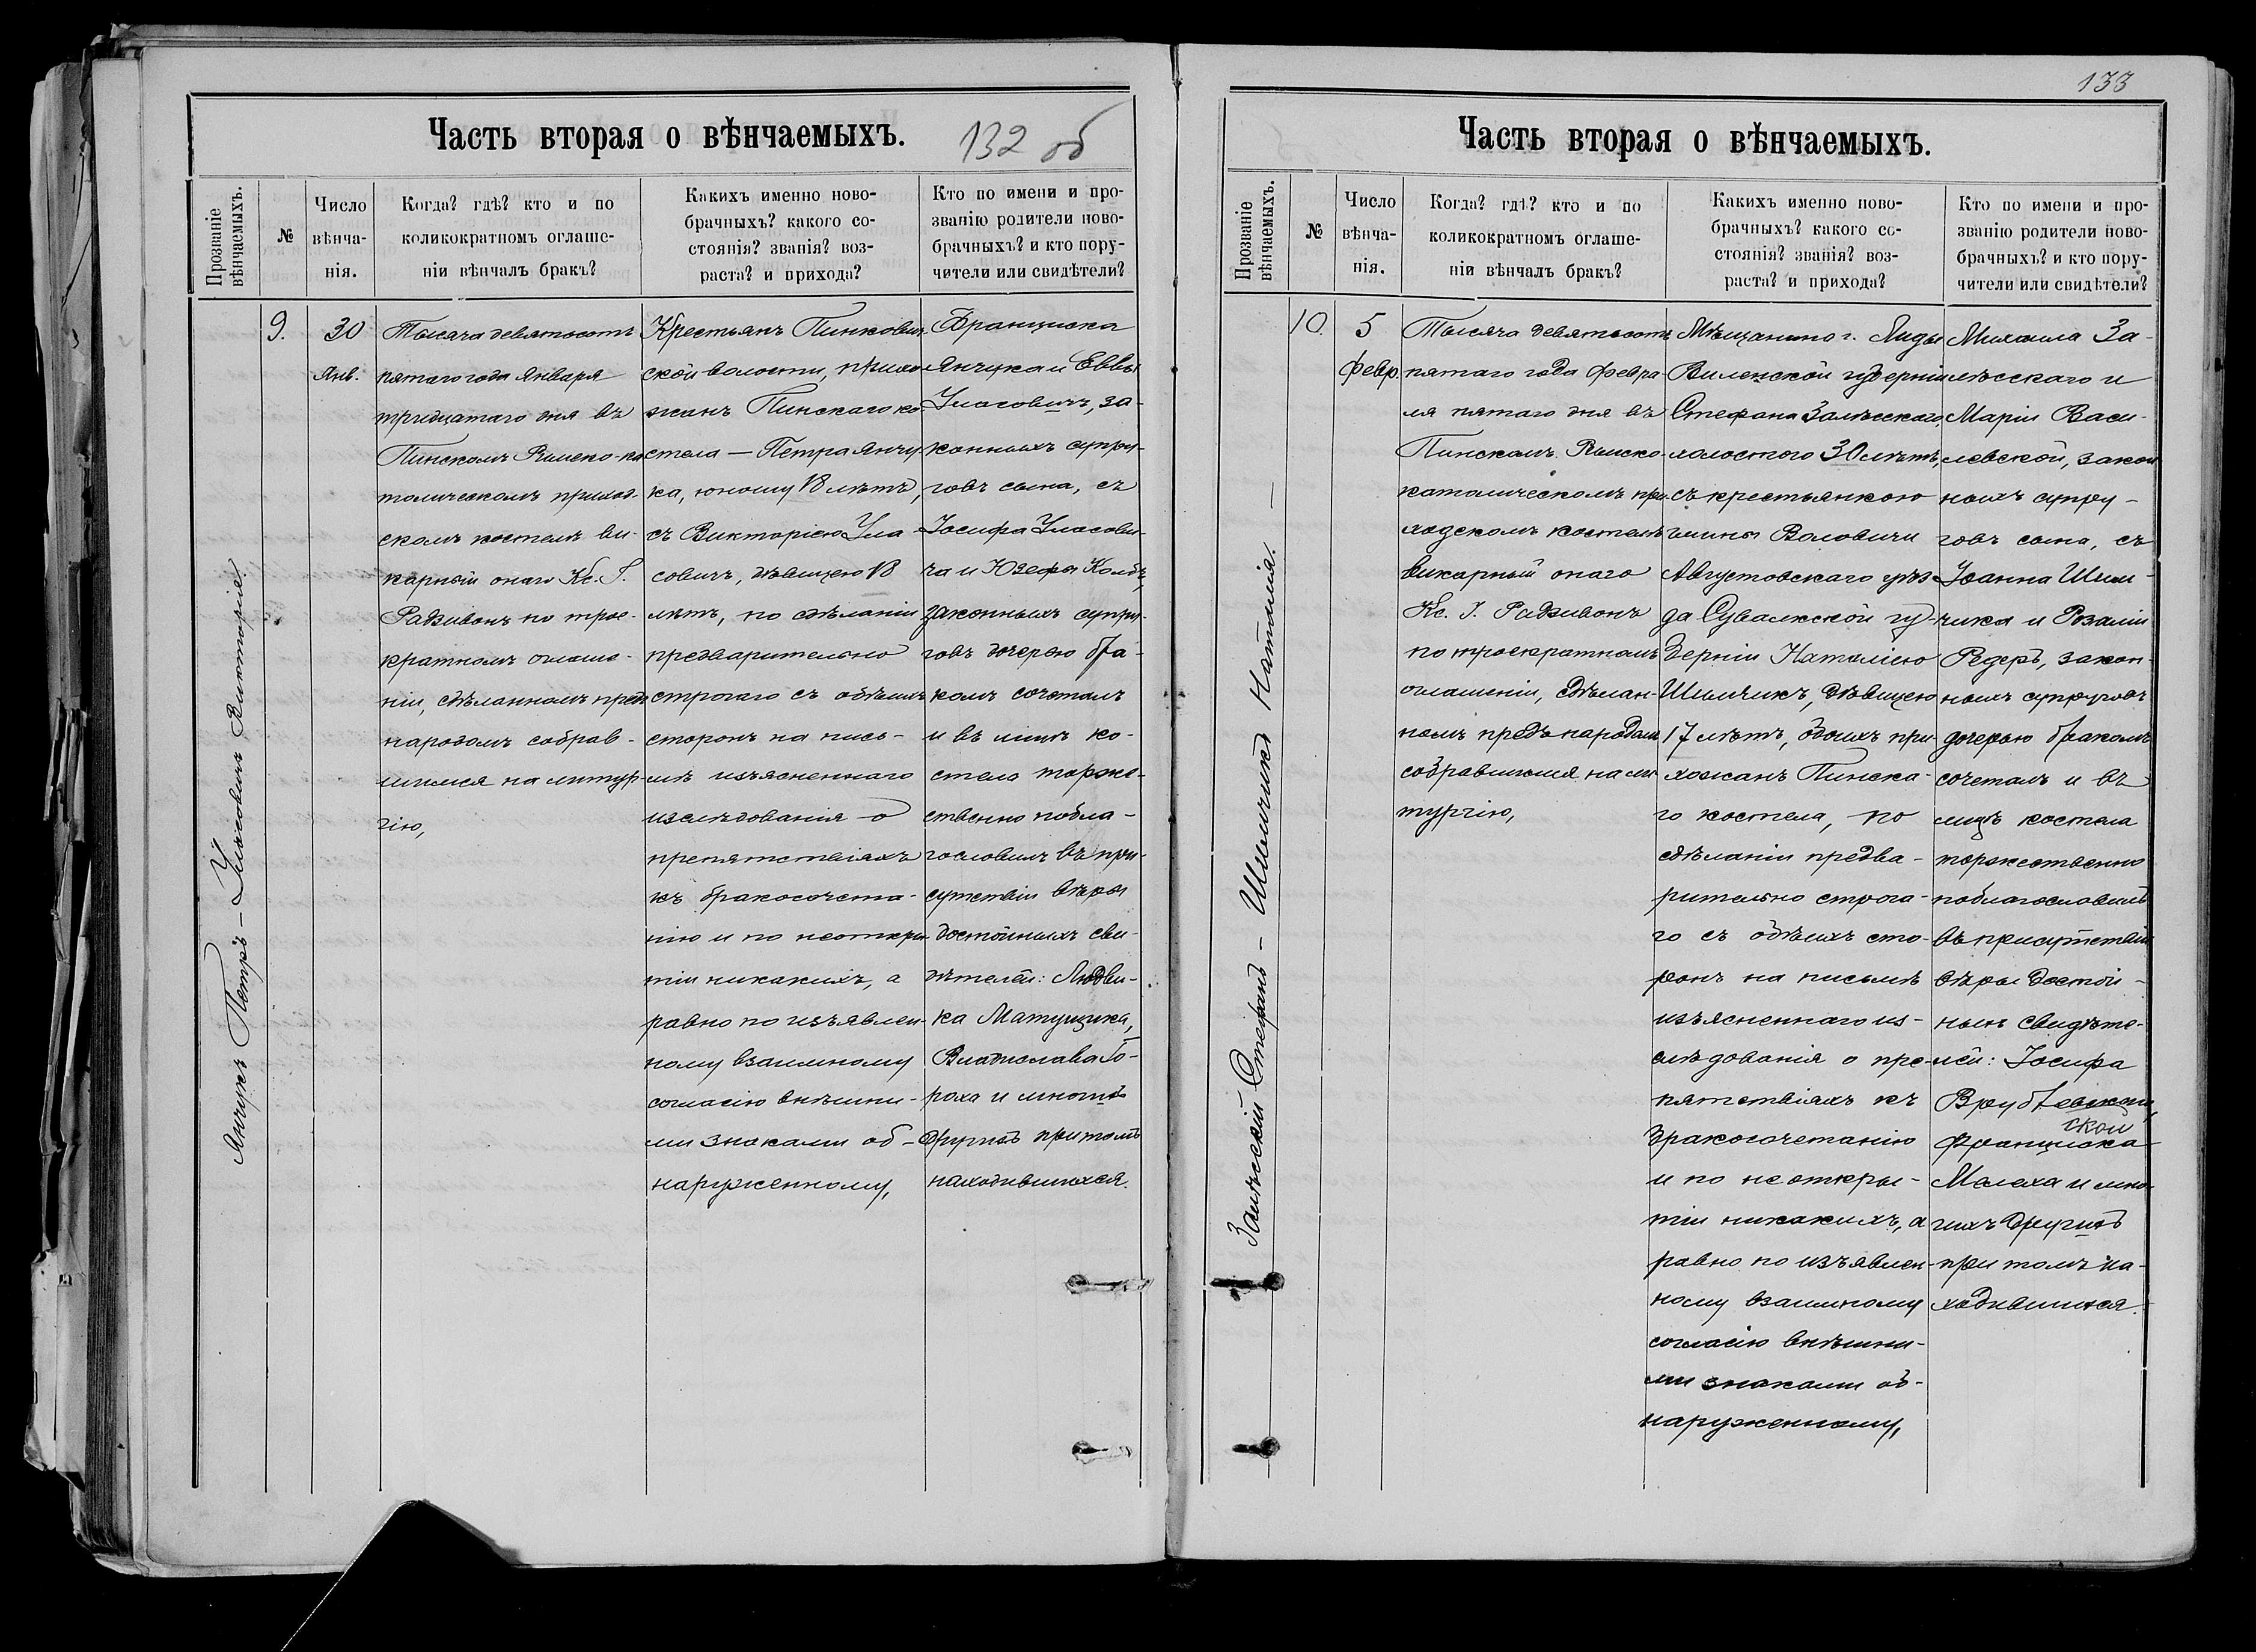 Часть вторая о вѣнчаемыхъ.
132 об
Прозваніе
вѣнчаемыхъ.
№
Число
вѣнча-
нія.
Когда? гдѣ? кто и по
коликократномъ оглаше-
ніи вѣнчалъ бракъ?
Каких именно ново-
брачныхъ? какого со-
стоянія? званія? воз-
раста? и прихода?
Кто по имени и про-
званію родители ново-
брачныхъ? и кто пору-
чители или свидѣтели?
Янчукъ Петръ – Уласовичъ Викторіе
9.
30
Янв.
Тысяча девятьсотъ
пятаго года Января
тридцатаго дня въ
Пинскомъ Римско-ка
толическомъ приход-
скомъ костелѣ ви-
карный онаго Кс. І.
Радзивонъ по трое-
кратномъ оглаше-
ніи, сдѣланномъ предъ
народомъ собрав-
шимся на литур-
гію,
Крестьянъ Пинкович
ской волости, прихо
жанъ Пинскаго ко
стела — Петра Янчу
ка, юношу 18 лѣтъ,
съ Викторіею Ула
совичъ, дѣвицею 18
лѣтъ, по сдѣланіи
предварительно
строгаго съ обѣихъ
сторонъ на пись-
мѣ изъясненнаго
изслѣдованія о
препятствіяхъ
къ бракосочета-
нію и по неоткры
тіи никакихъ, а
равно по изъявлен-
ному взаимному
согласію внѣшни-
ми знаками об-
наруженному,
Франциска
Янчука и Еввы
Уласовичъ, за-
конныхъ супру-
говъ сына, съ
Іосифа Уласови-
ча и Юзефы Колбъ,
законныхъ супру-
говъ дочерью бра-
комъ сочеталъ
и въ лицѣ ко-
стела торже-
ственно побла-
гословилъ въ при-
сутствіи вѣры
достойныхъ сви-
дѣтелей: Людви-
ка Матущика,
Владислава Го-
роха и многихъ
другихъ притомъ
находившихся.
133
Часть вторая о вѣнчаемыхъ.
Прозваніе
вѣнчаемыхъ.
№
Число
вѣнча-
нія.
Когда? гдѣ? кто и по
коликократномъ оглаше-
ніи вѣнчалъ бракъ?
Каких именно ново-
брачныхъ? какого со-
стоянія? званія? воз-
раста? и прихода?
Кто по имени и про-
званію родители ново-
брачныхъ? и кто пору-
чители или свидѣтели?
Залѣсскій Стефанъ – Шимчикъ Наталія. —
10.
5
Февр.
Тысяча девятьсотъ
пятаго года Февра-
ля пятаго дня въ
Пинскомъ Римско-
католическомъ при-
ходскомъ костелѣ
викарный онаго
Кс. І. Радзивонъ
по троекратномъ
оглашеніи, сдѣлан-
номъ предъ народомъ
собравшимся на ли
тургію,
Мѣщанина г. Лиды
Виленской губерніи
Стефана Залѣсскаго,
холостого 30 лѣтъ,
съ крестьянкою
гмины Воловичи
Августовскаго уѣз-
да Сувалкской гу-
берніи Наталіею
Шимчикъ, дѣвицею
17 лѣтъ, обоихъ при-
хожанъ Пинска-
го костела, по
сдѣланіи предва-
рительно строга-
го съ обѣихъ сто-
ронъ на письмѣ
изъясненнаго из-
слѣдованія о пре-
пятствіяхъ къ
бракосочетанію
и по неоткры-
тіи никакихъ, а
равно по изъявлен-
ному взаимному
согласію внѣшни-
ми знаками об-
наруженному,
Михаила За-
лѣсскаго и
Маріи Васи-
левской, закон
ныхъ супру-
говъ сына, съ
Іоанна Шим-
чика и Розаліи
Редеръ, закон-
ныхъ супруговъ
дочерью бракомъ
сочеталъ и въ
лицѣ костела
торжественно
поблагословилъ
въ присутствіи
вѣры достой-
ныхъ свидѣте-
лей: Іосифа
ской
Франциска
Малаха и мно-
гихъ другихъ
при томъ на-
ходившихся.